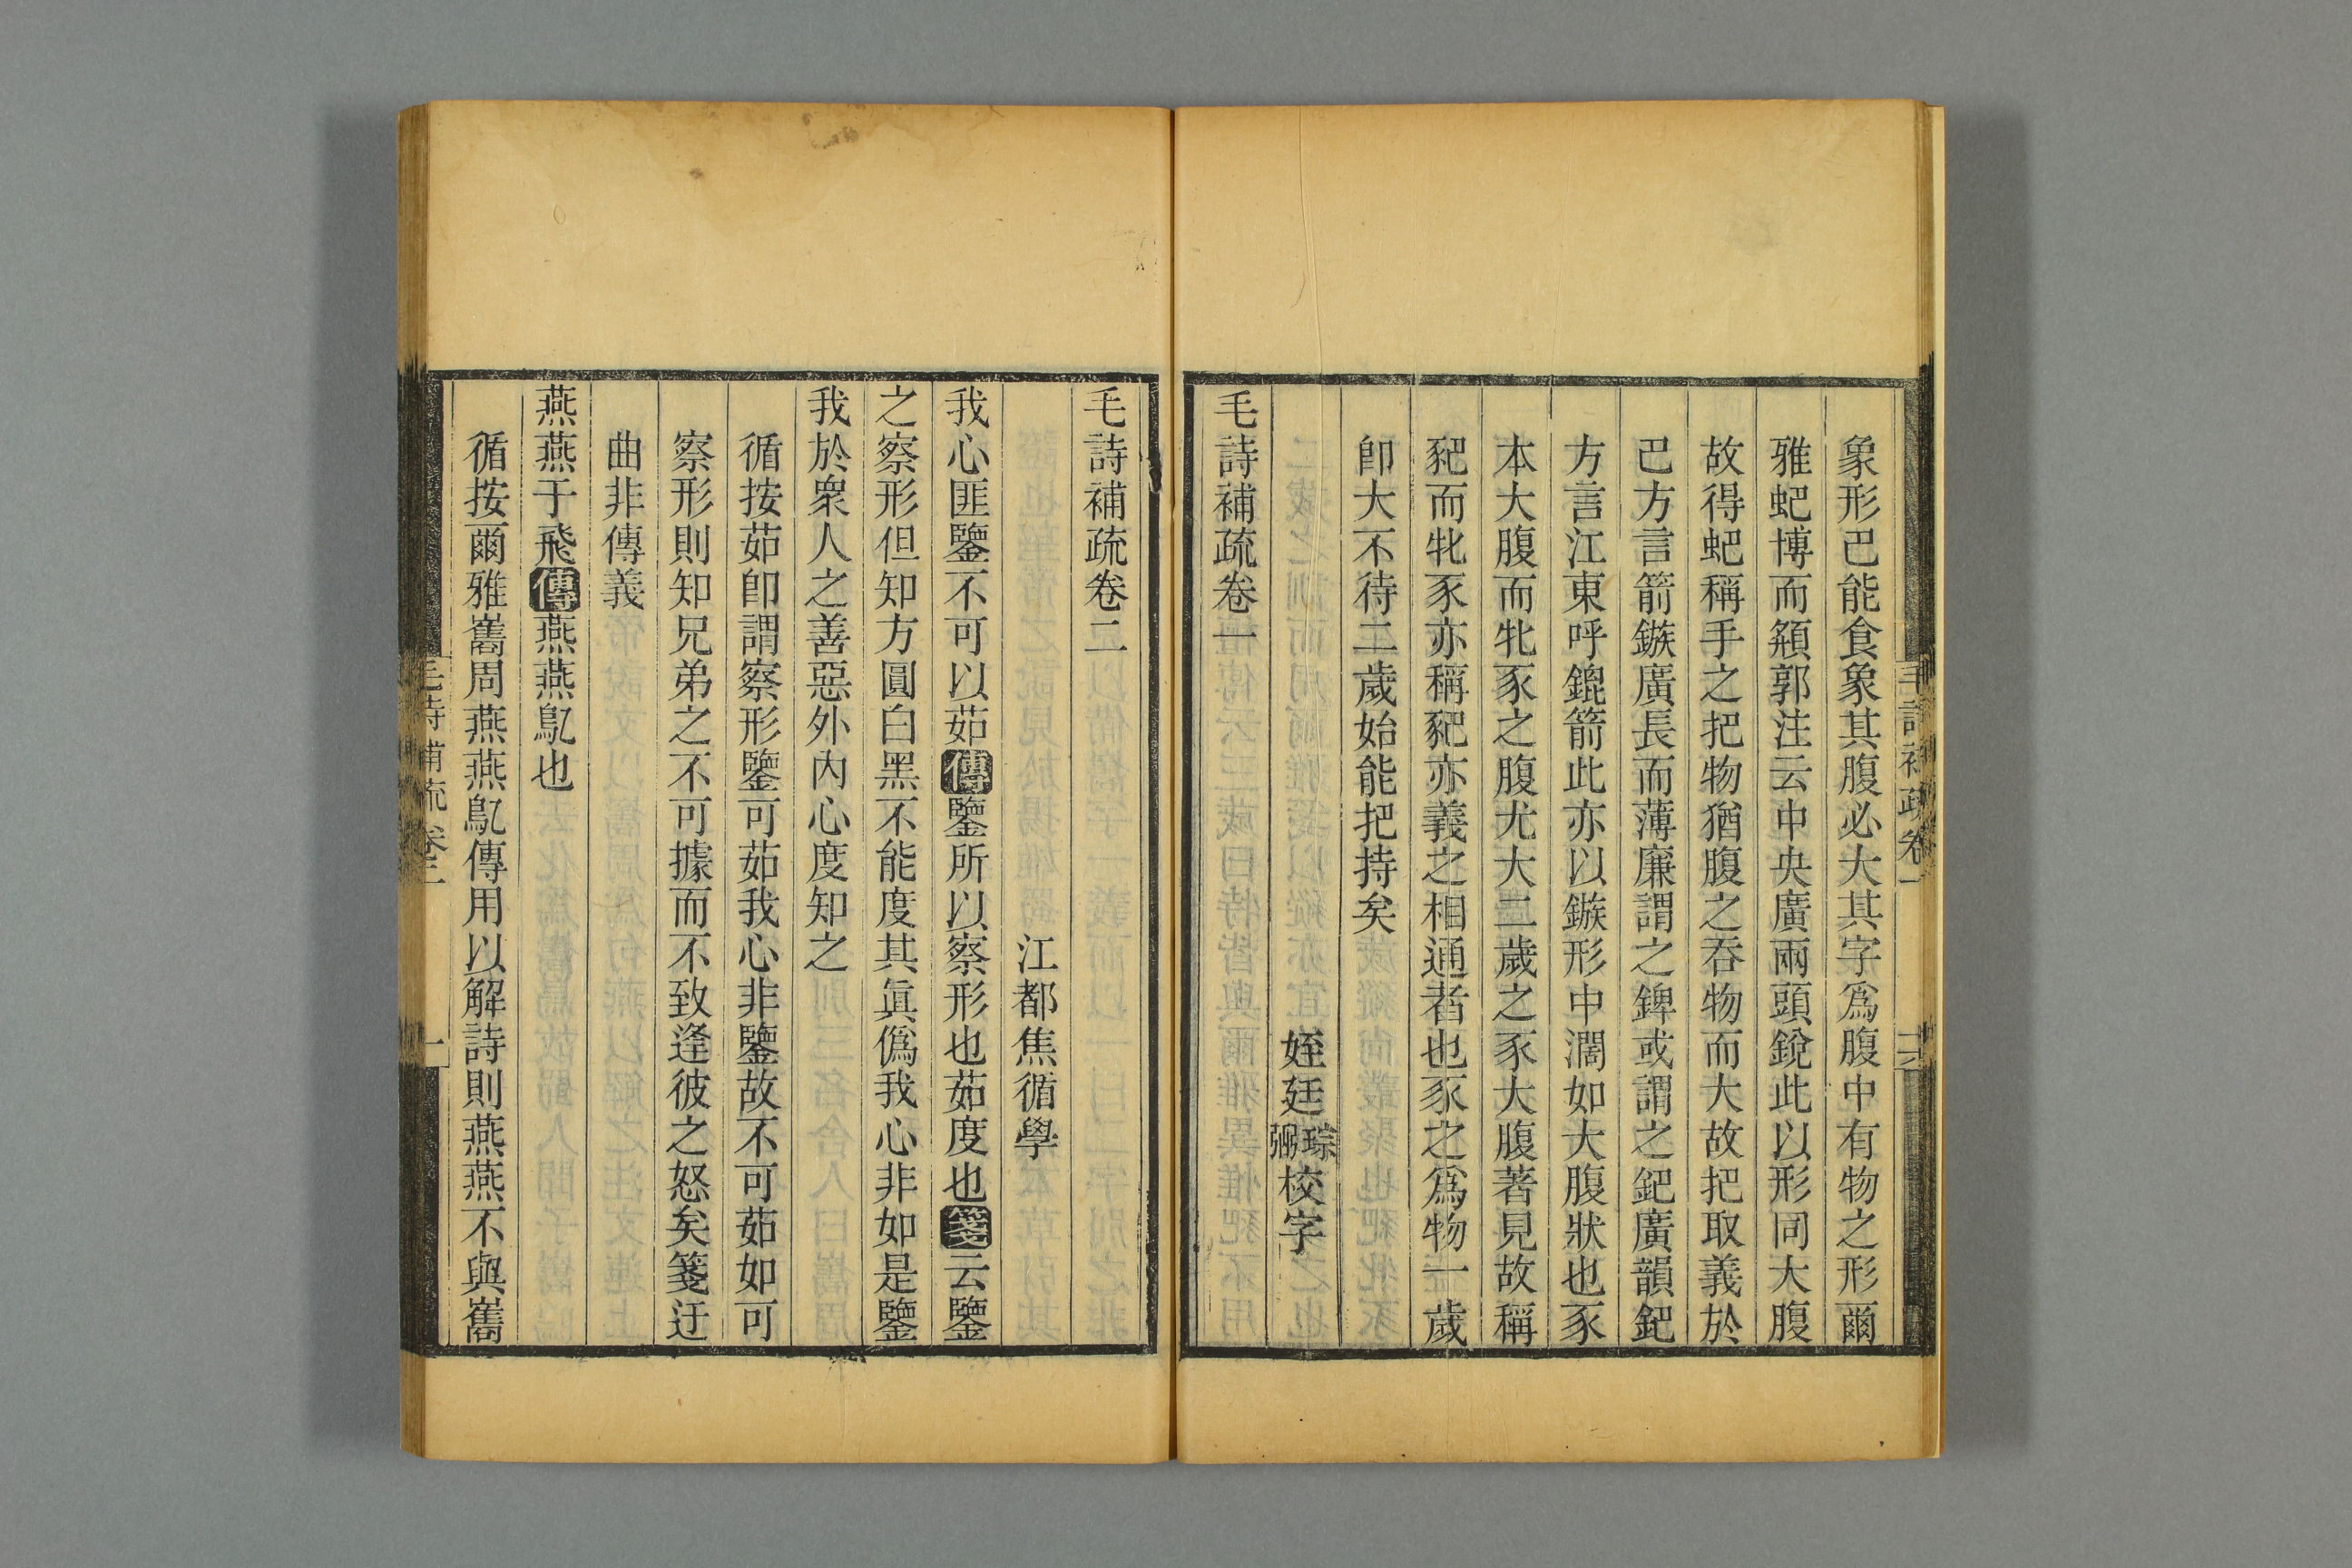 象形巴能食象其腹必大其字爲腹中有物之形爾
雅蚆博而頯郭注云中央廣兩頭銳此以形同大腹
故得蚆稱手之把物猶腹之吞物而大故把取義於
巴方言箭鏃廣長而薄廉謂之錍或謂之鈀廣韻鈀
方言江東呼錕箭此亦以鏃形中濶如大腹狀也豕
本大腹而牝豕之腹尤大二歲之豕大腹著見故稱
豝而牝豕亦稱豝亦義之相通者也豕之爲物一歲
卽大不待二歲始能把持矣
姪廷琮弼校字
毛詩補疏卷一
毛詩補疏卷一
十六
毛詩補疏卷二
江都焦循學
我心匪鑒不可以茹傳鑒所以察形也茹度也箋云鑒
之察形但知方圓白黑不能度其眞僞我心非如是鑒
我於衆人之善惡外內心度知之
循按茹卽謂察形鑒可茹我心非鑒故不可茹如可
察形則知兄弟之不可據而不致逢彼之怒矣箋迂
曲非傳義
燕燕于飛傳燕燕鳦也
循按爾雅巂周燕燕鳦傳用以解詩則燕燕不與巂
毛詩補疏卷二
一